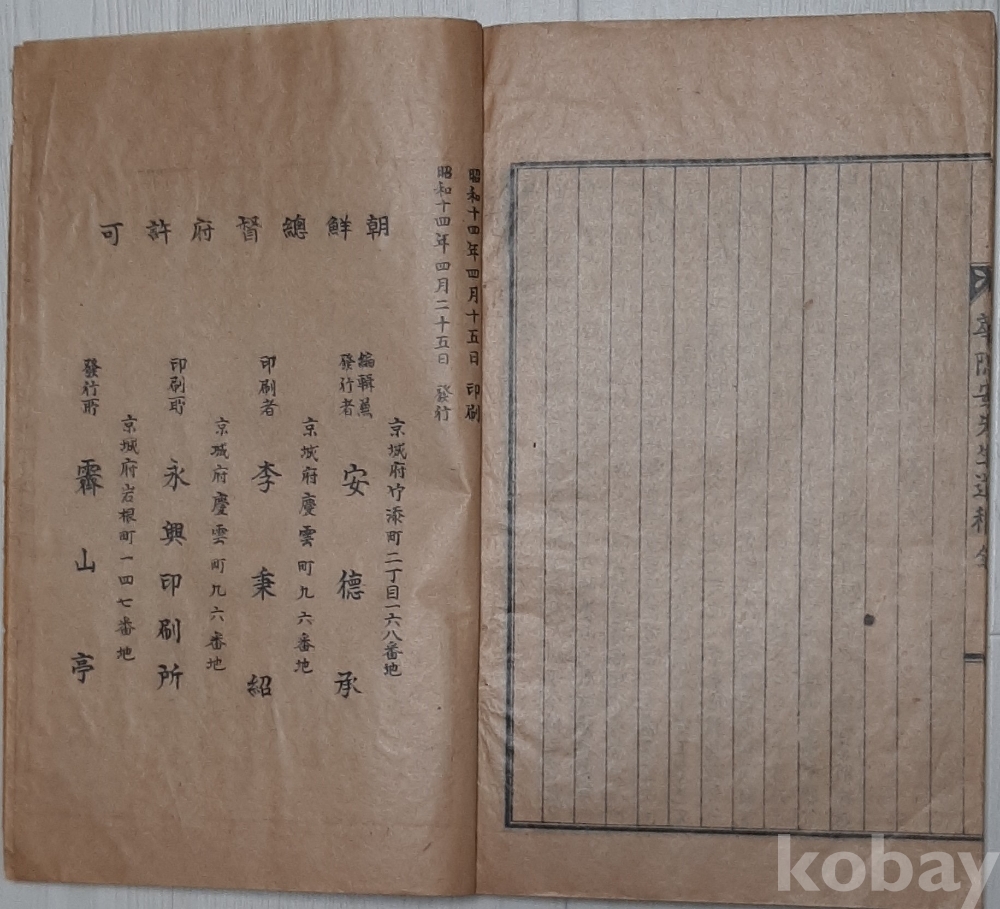 安先生遺稿
昭和十四年四月十五日 印刷
昭和十四年四月二十五日 發行
朝鮮總督府許可
京城府竹添町二丁目一六八番地
編輯兼發行者 安德承
京城府慶雲町九六番地
印刷者 李秉紹
京城府慶雲町九六番地
印刷所 永興印刷所
京城府岩根町一四七番地
發行所 霽山亭
kobay